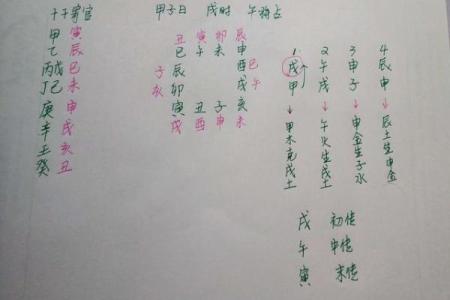 十干寄宫
甲寅
乙辰
丙戊巳
丁己未
庚申
辛戌
壬亥
癸丑
甲子日 戌时 午将占
丑寅卯辰
巳午未申
子辰酉巳
亥卯戌午
寅丑子亥
戌酉申未
1 戌甲 ↓ 甲木克戌土
2 午戌 ↓ 午火生戌土
3 申子 ↓ 申金生子水
4 辰申 ↓ 辰土生申金
戌 初传
午 中传
寅 末传